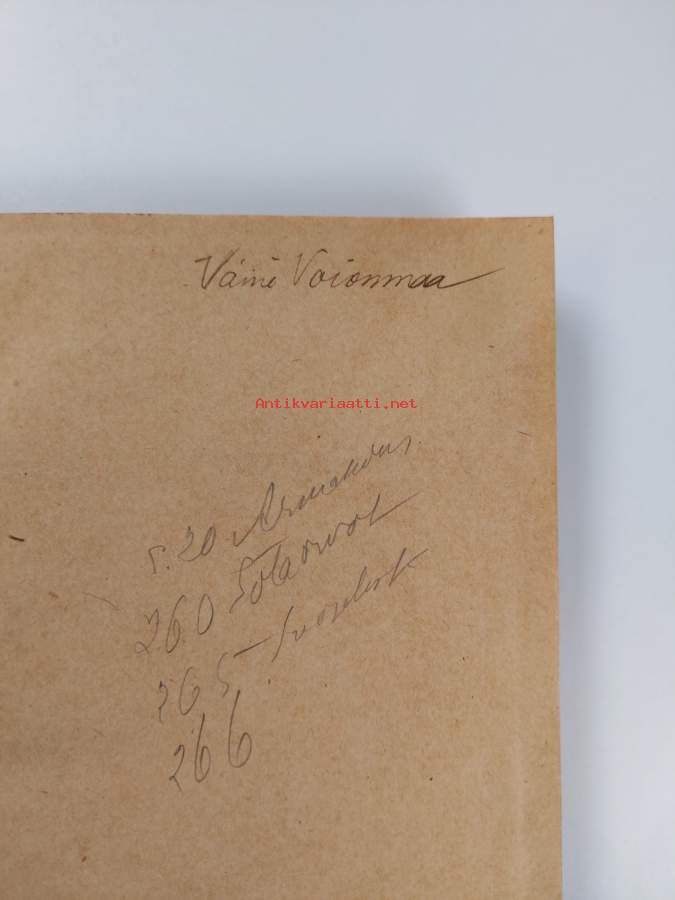 Väinö Voionmaa
Antikvariaatti.net
s. 20
260 Sotaorvot
265
266